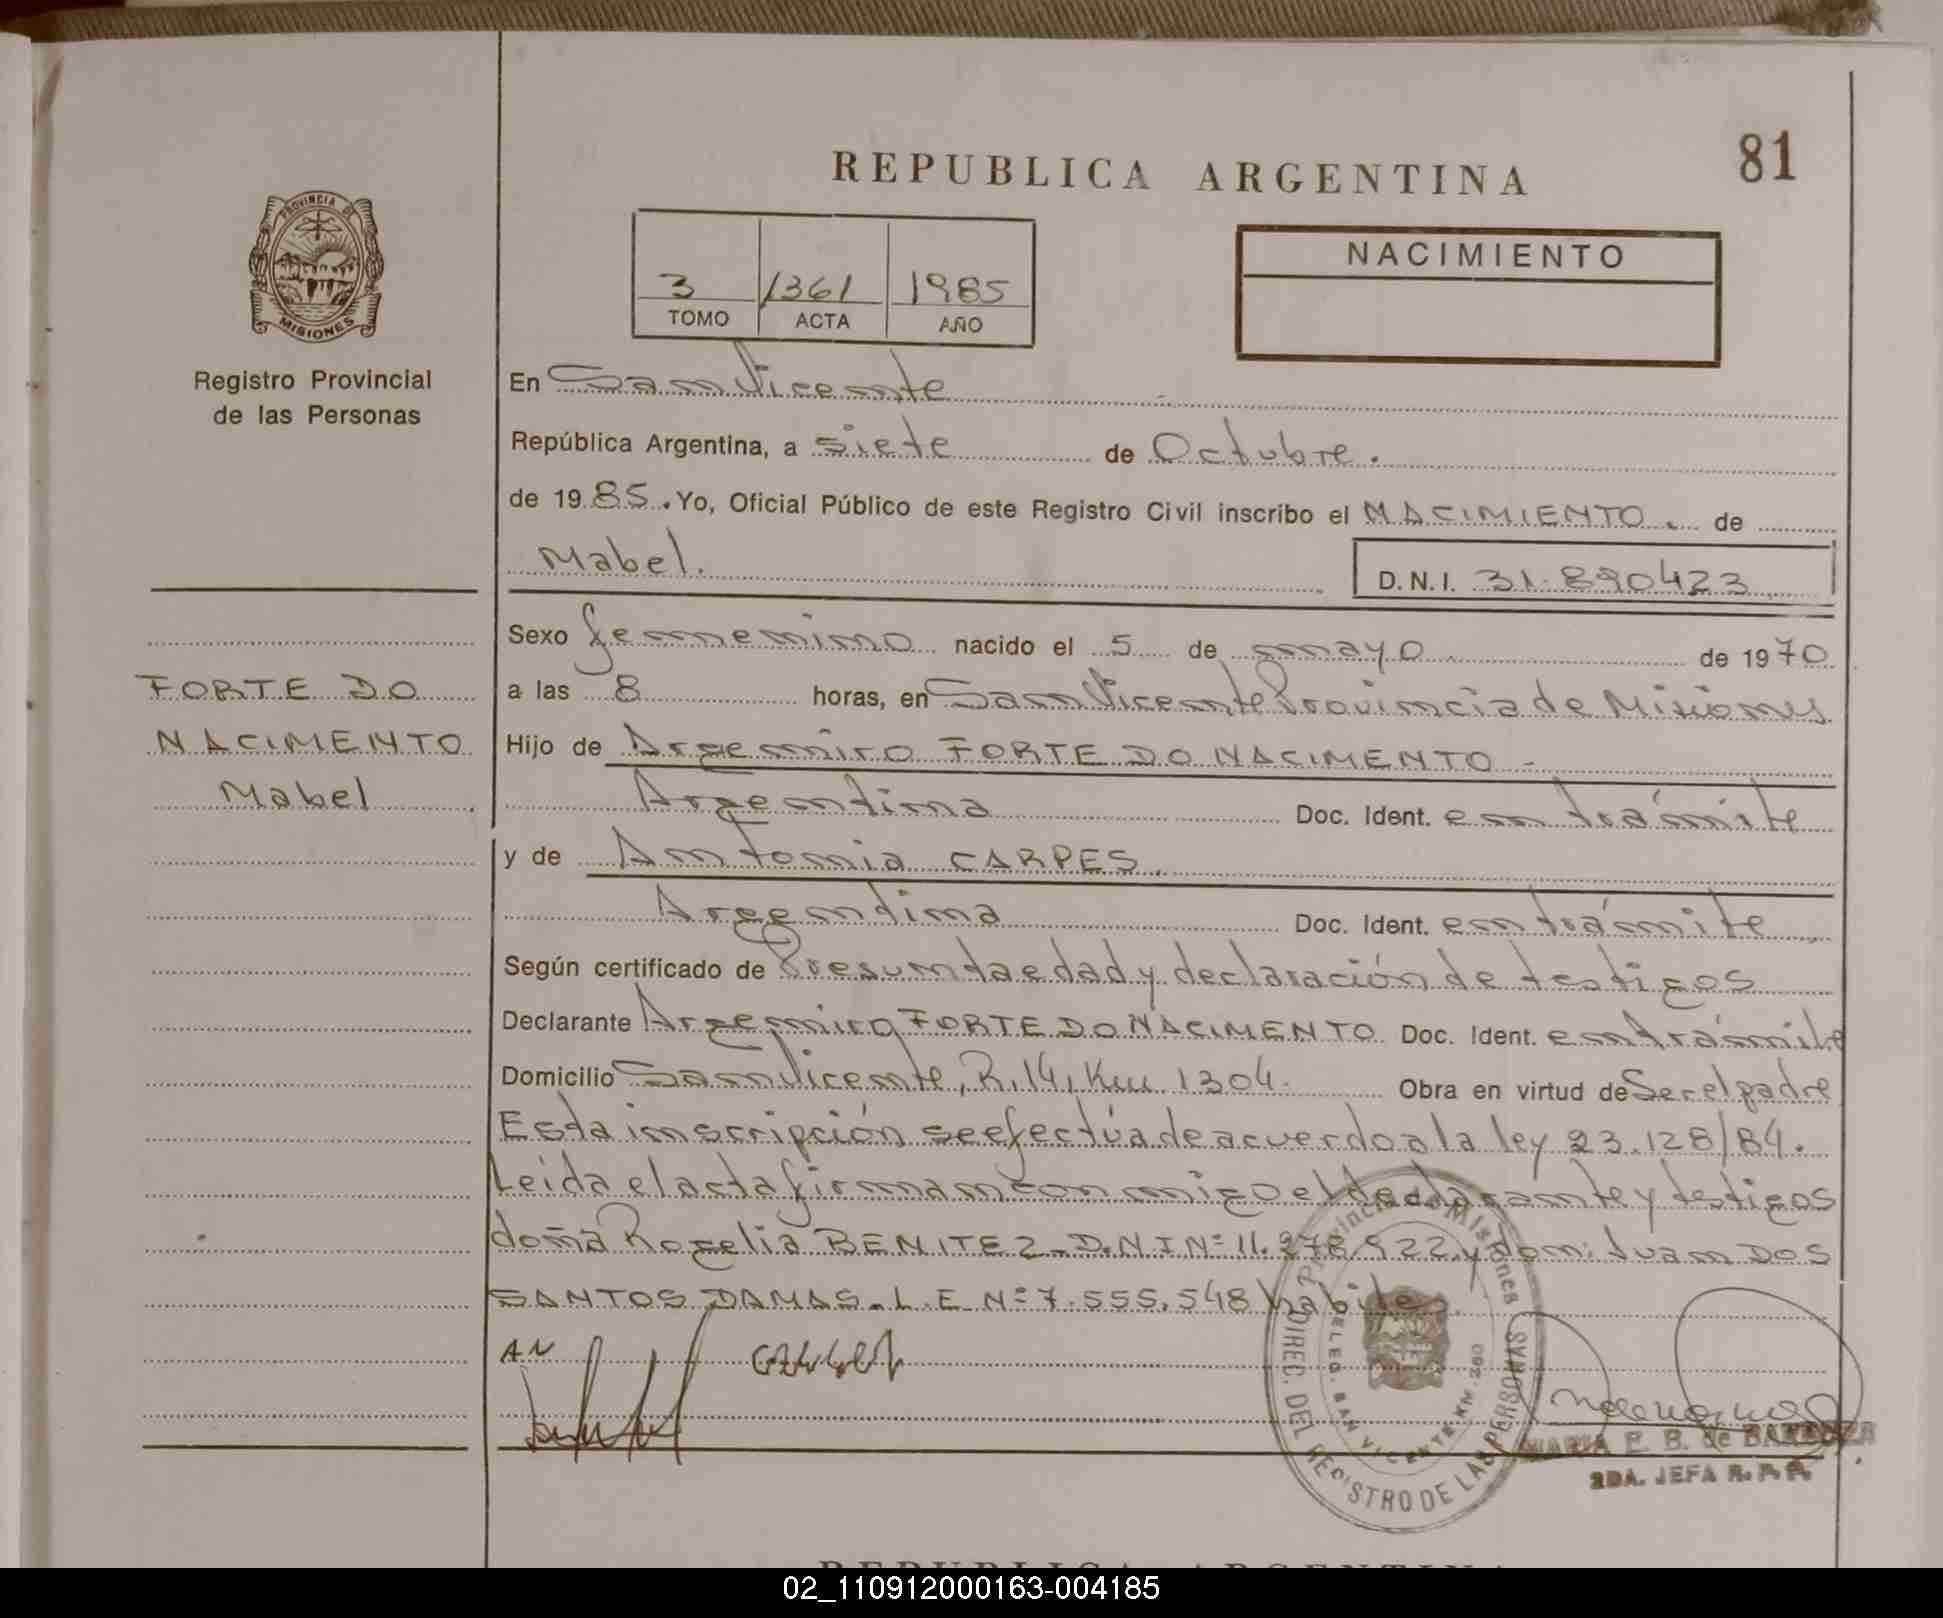 81
REPUBLICA ARGENTINA
PROVINCIA DE
MISIONES
Registro Provincial
de las Personas
3 1361 1985
TOMO ACTA AÑO
NACIMIENTO
En San Vicente
República Argentina, a siete de Octubre.
de 1985. Yo, Oficial Público de este Registro Civil inscribo el NACIMIENTO. de
Mabel.
D.N.I. 31.890423
Sexo femenino nacido el 5 de mayo de 1970
FORTE DO
NACIMENTO
Mabel
a las 8 horas, en San Vicente Provincia de Misiones
Hijo de Argemiro FORTE DO NACIMENTO -
Argentina Doc. Ident. en trámite
y de Antonia CARPES.
Argentina Doc. Ident. en trámite
Según certificado de Presunta edad y declaración de testigos
Declarante Argemiro FORTE DO NACIMENTO Doc. Ident. en trámite
Domicilio San Vicente, R.14, Km 1304. Obra en virtud de Ser el padre
Esta inscripción se efectúa de acuerdo a la ley 23.128/84.
Leída el acta firman conmigo el declarante y testigos
doña Rogelia BENITEZ. D.N.I Nº 11.278.922 y don: Juan DOS
SANTOS DAMAS. L.E Nº 7.555.548 habiles.
Provincia de Misiones
DIREC. DEL REGISTRO DE LAS PERSONAS
DELEG. SAN VICENTE KM. 280
MARIA E. B. de
2DA. JEFA R. P. P.
REPUBLICA ARGENTINA
02_110912000163-004185